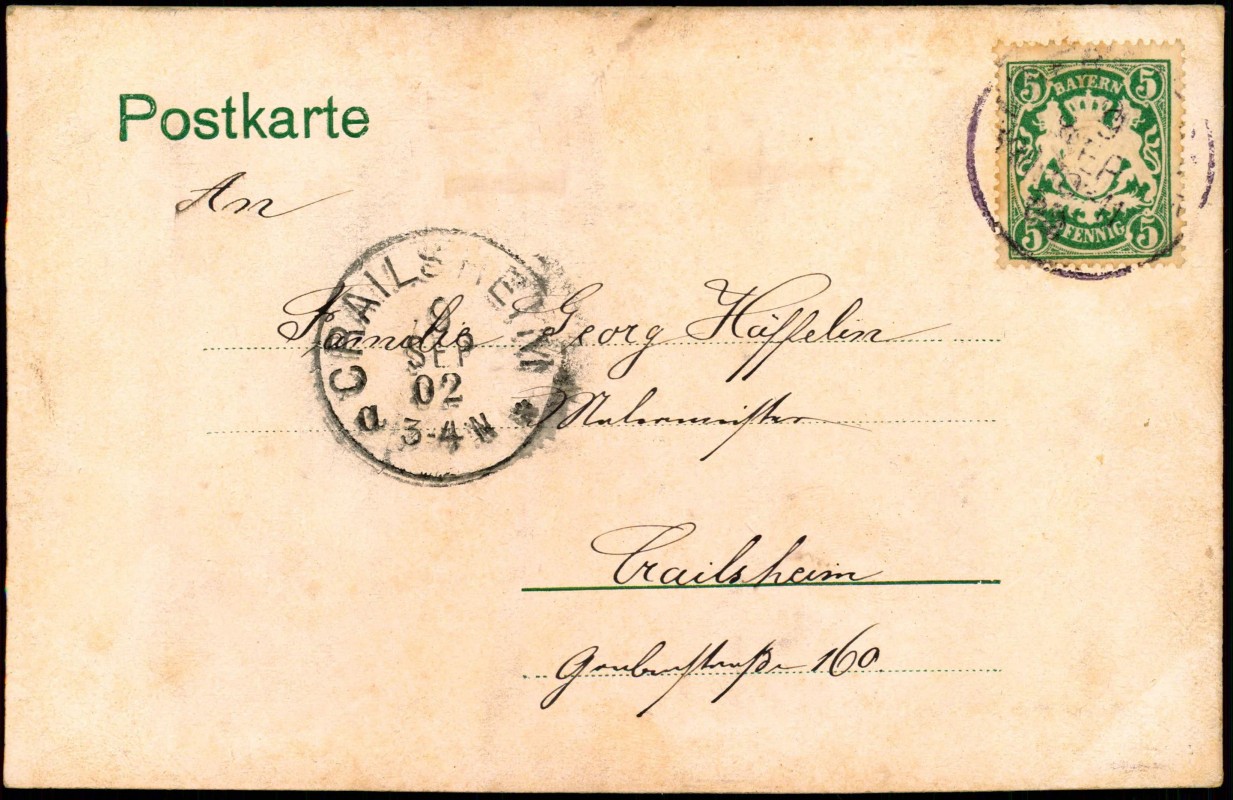 Postkarte
An
5 BAYERN 5
5 PFENNIG 5
9 SEP
CRAILSHEIM
9
SEP
02
3-4 N
a *
Familie Georg Häffelin
Malermeister
Crailsheim
Grabenstraße 160